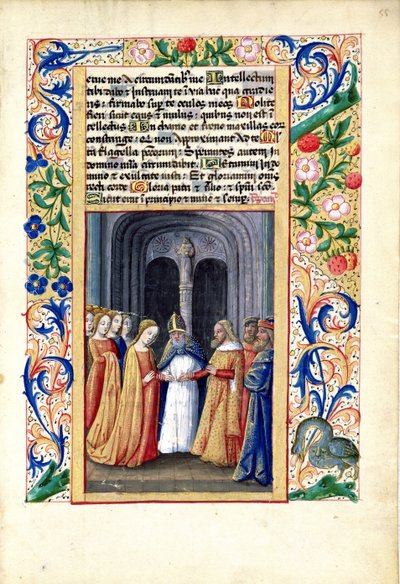 55
erue me a circundātibus me Intellectum
tibi dabo & instruam te ī via hac qua gradie
ris: firmabo sup te oculos meos Nolite
fieri sicut equs & mulus: quibus non est ī
tellectus In chamo et freno maxillas eor
constringe: qui non approximant ad te Mu
lta flagella pctoris: sperantes autem in
domino mīa circundabit Letamini in do
mino & exultate iusti: et gloriamini omēs
recti corde Gloria patri & filio: & spūi scō
Sicut erat ī principio & nunc & semp: